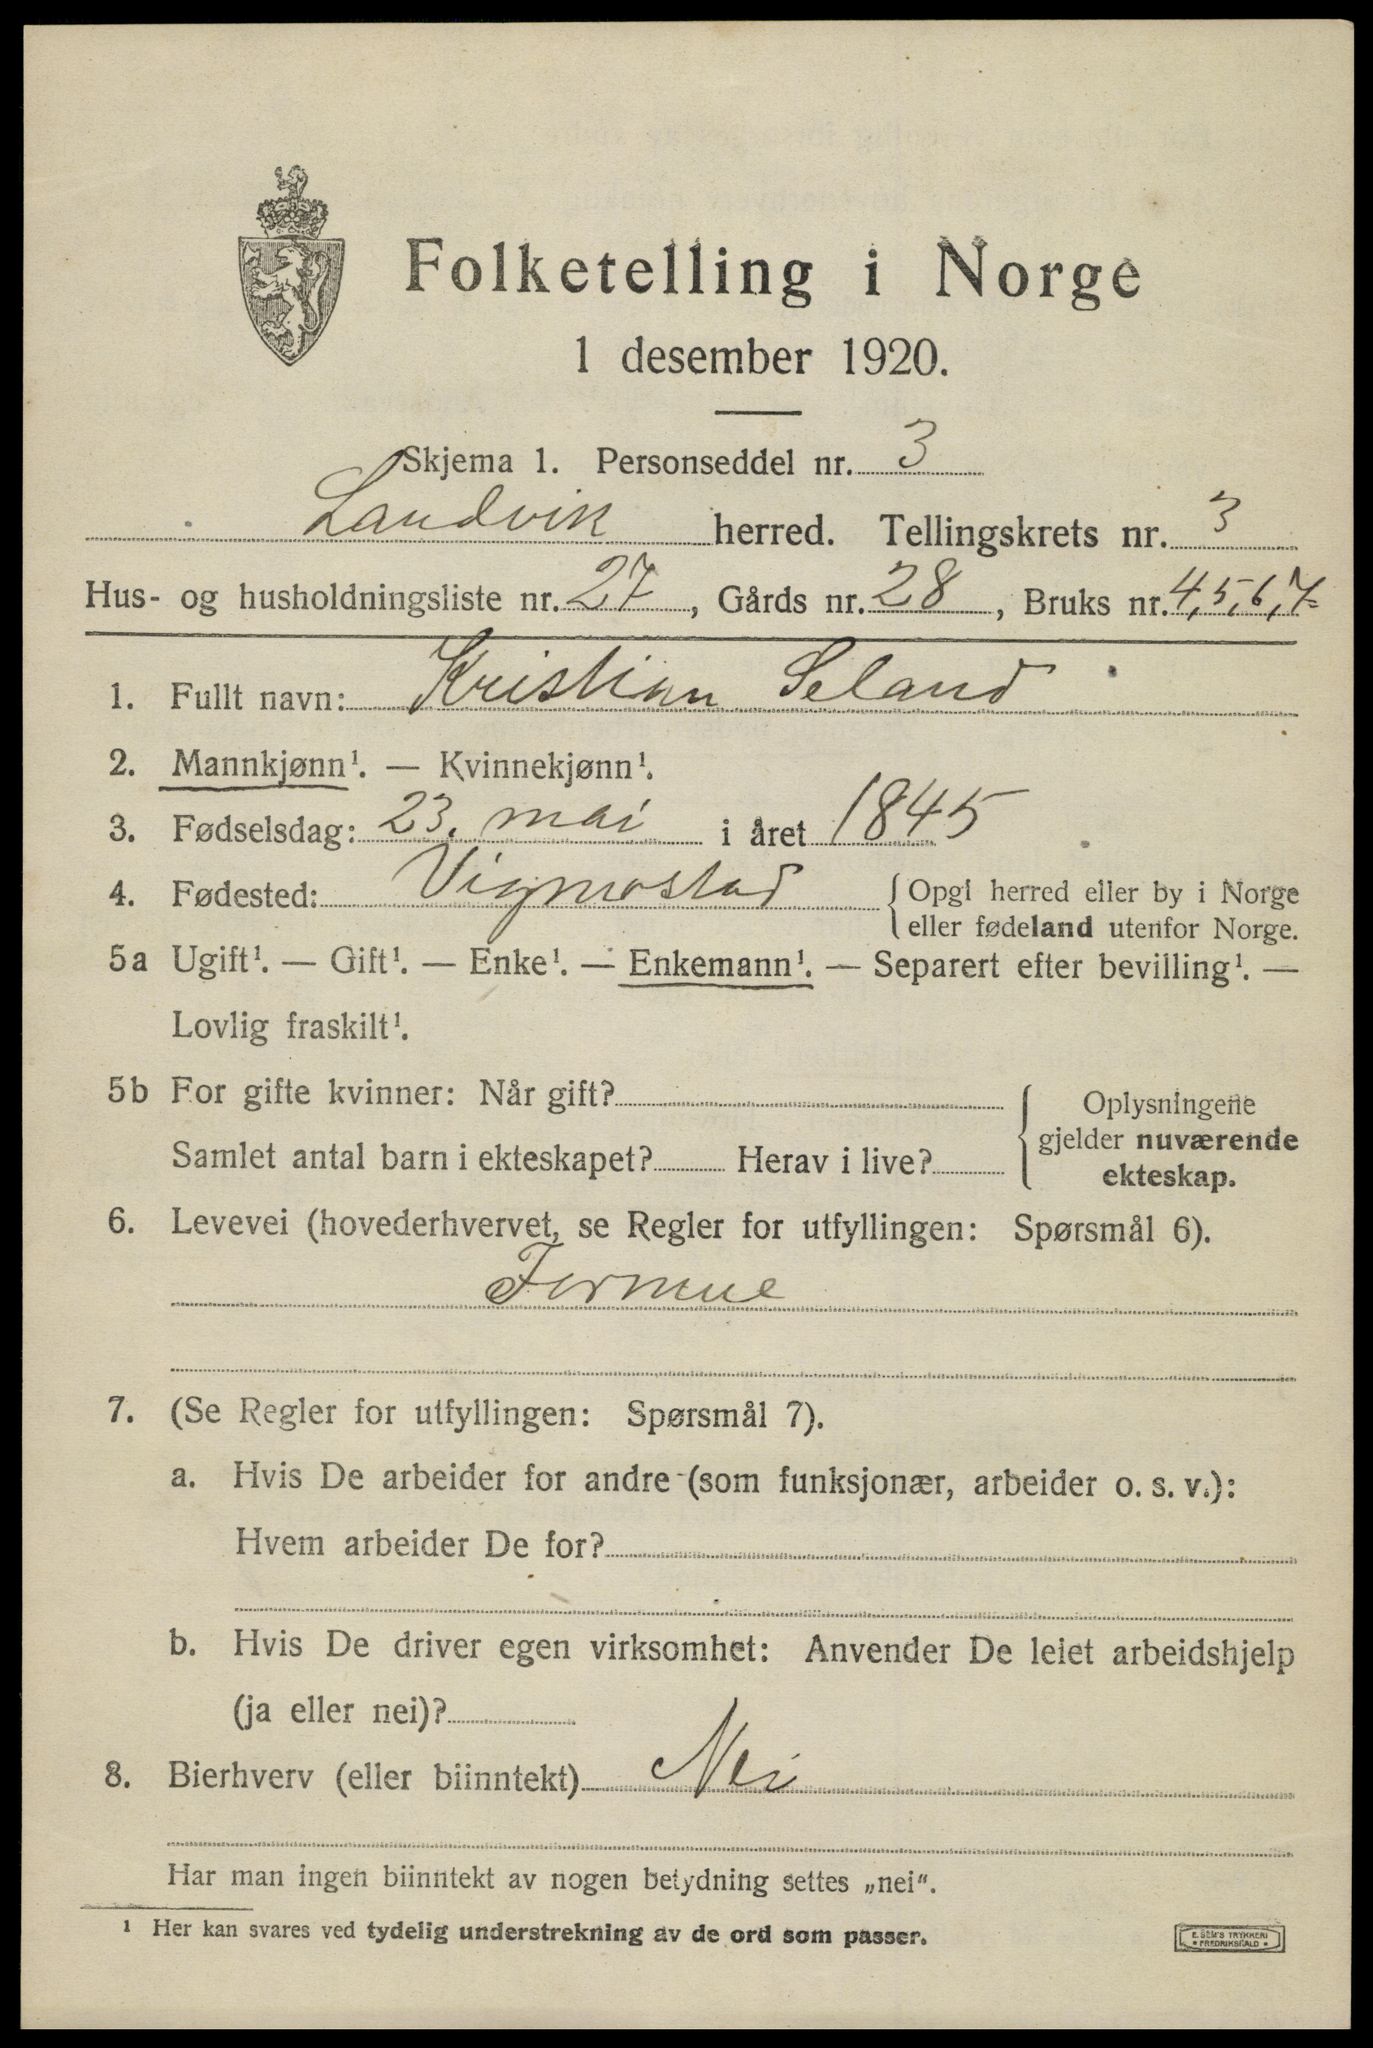 Folketelling i Norge
1 desember 1920.
Skjema 1. Personseddel nr. 3
Landvik herred. Tellingskrets nr. 3
Hus- og husholdningsliste nr. 27, Gårds nr. 28, Bruks nr. 4, 5, 6, 7
1. Fullt navn: Kristian Seland
2. Mannkjønn¹. — Kvinnekjønn¹.
3. Fødselsdag: 23. mai i året 1845
4. Fødested: Vigmostad { Opgi herred eller by i Norge
eller fødeland utenfor Norge.
5a Ugift¹. — Gift¹. — Enke¹. — Enkemann¹. — Separert efter bevilling¹. —
Lovlig fraskilt¹.
5b For gifte kvinner: Når gift? { Oplysningene
gjelder nuværende
ekteskap.
Samlet antal barn i ekteskapet? Herav i live?
6. Levevei (hovederhvervet, se Regler for utfyllingen: Spørsmål 6).
Formue
7. (Se Regler for utfyllingen: Spørsmål 7).
a. Hvis De arbeider for andre (som funksjonær, arbeider o. s. v.):
Hvem arbeider De for?
b. Hvis De driver egen virksomhet: Anvender De leiet arbeidshjelp
(ja eller nei)?
8. Bierhverv (eller biinntekt) Nei
Har man ingen biinntekt av nogen betydning settes „nei“.
¹ Her kan svares ved tydelig understrekning av de ord som passer.
E. SEM'S TRYKKERI
• FREDRIKSHALD •